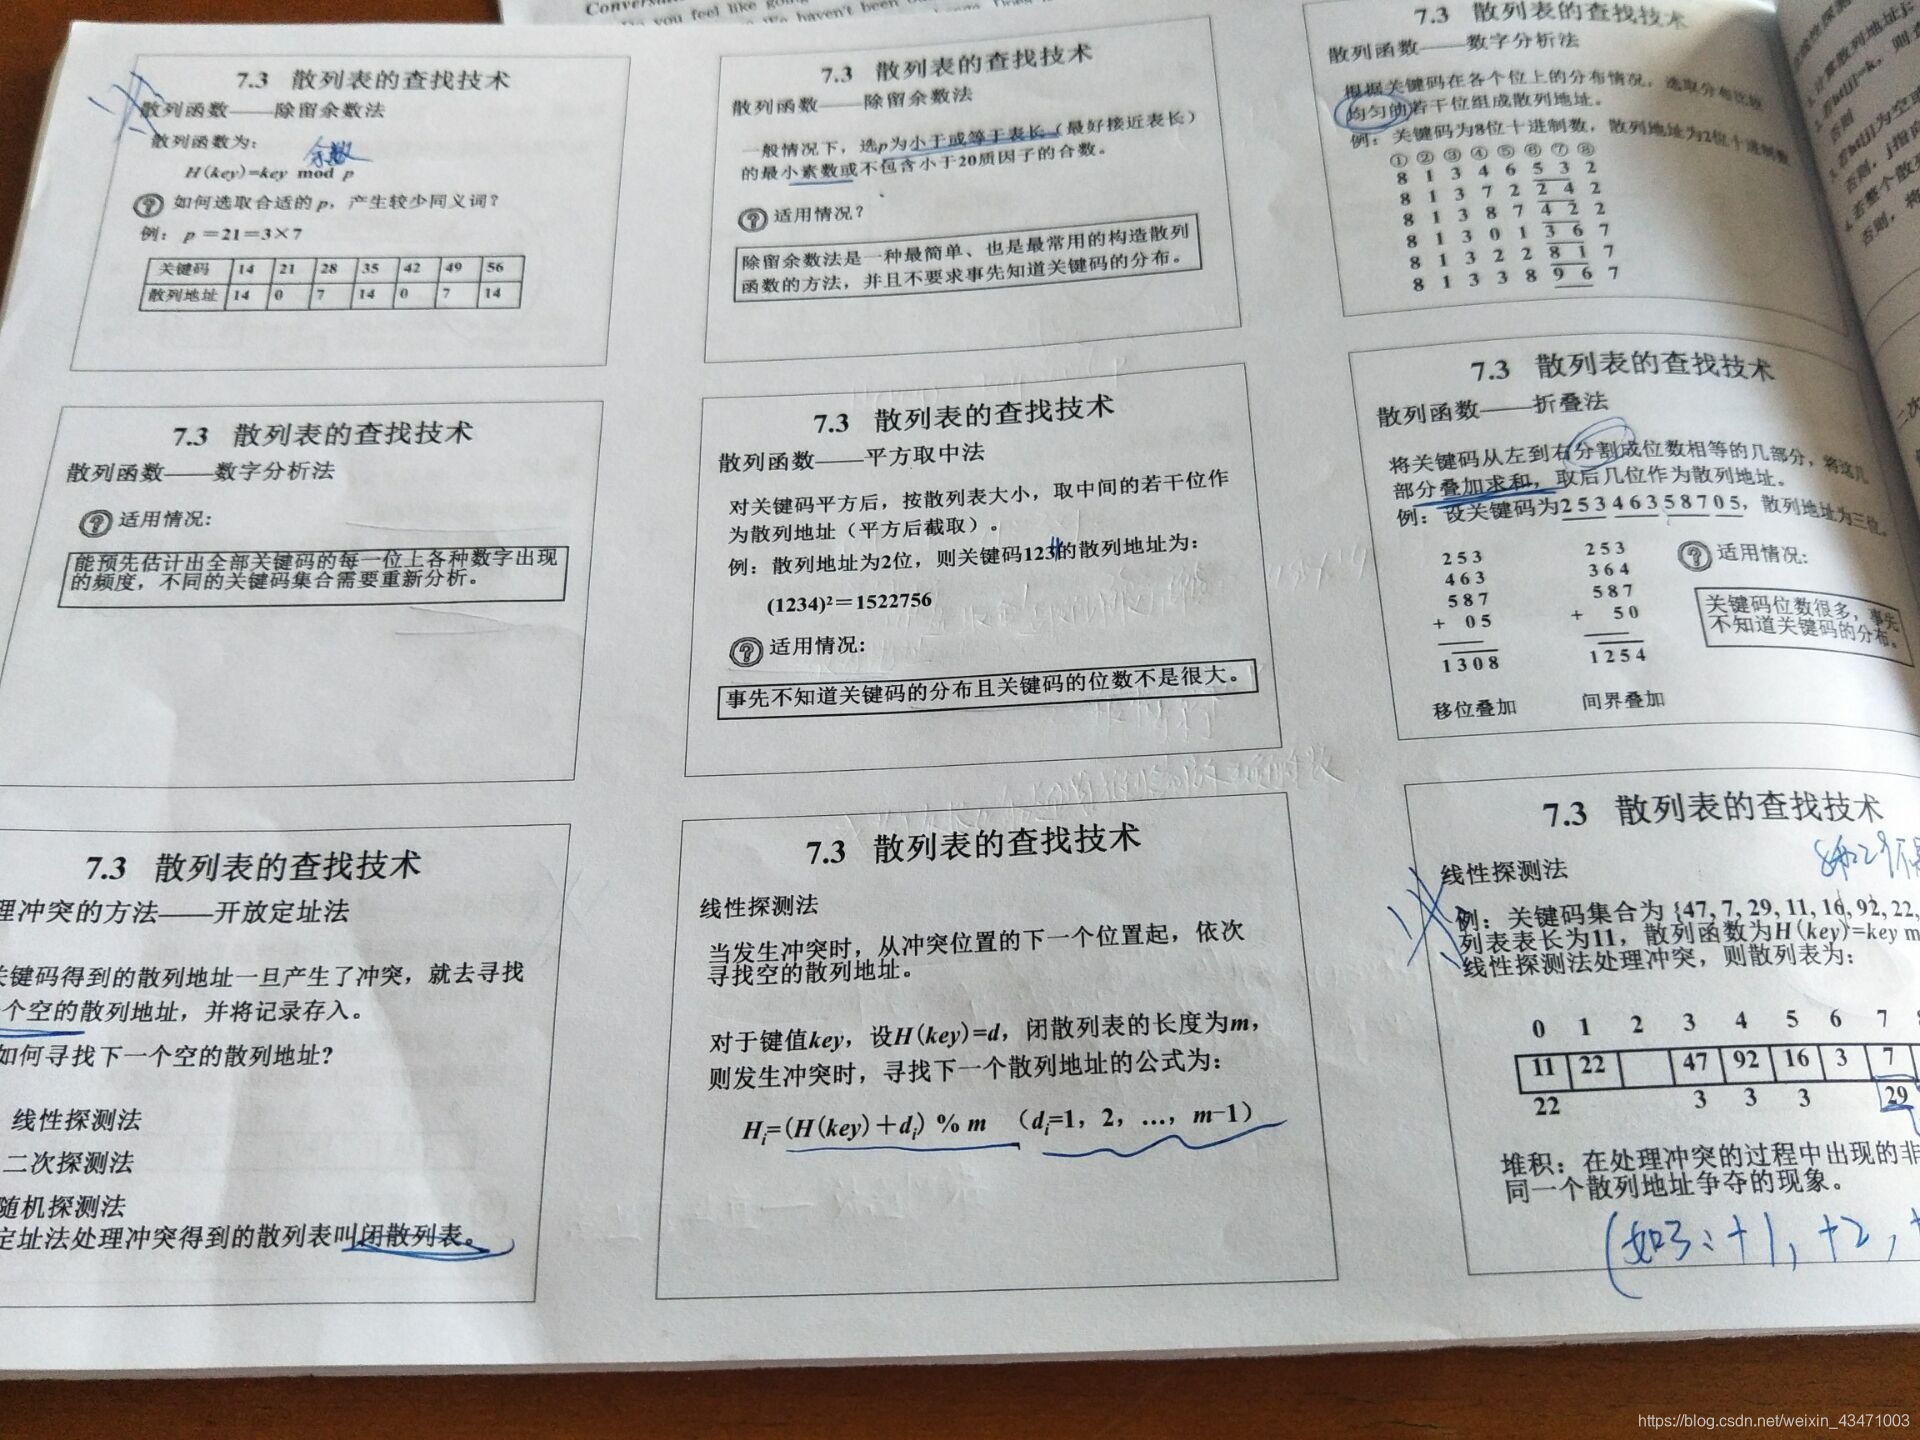 Conversa
Do you feel like going
We haven't been
7.3 散列表的查找技术
散列函数——除留余数法
散列函数为：
余数
H(key)=key mod p
如何选取合适的 p，产生较少同义词？
例： p =21=3×7
关键码 14 21 28 35 42 49 56
散列地址 14 0 7 14 0 7 14
7.3 散列表的查找技术
散列函数——除留余数法
一般情况下，选p为小于或等于表长（最好接近表长）
的最小素数或不包含小于20质因子的合数。
适用情况？
除留余数法是一种最简单、也是最常用的构造散列
函数的方法，并且不要求事先知道关键码的分布。
7.3 散列表的查找技术
散列函数——数字分析法
根据关键码在各个位上的分布情况，选取分布比较
均匀的若干位组成散列地址。
例：关键码为8位十进制数，散列地址为2位十进制数
① ② ③ ④ ⑤ ⑥ ⑦ ⑧
8 1 3 4 6 5 3 2
8 1 3 7 2 2 4 2
8 1 3 8 7 4 2 2
8 1 3 0 1 3 6 7
8 1 3 2 2 8 1 7
8 1 3 3 8 9 6 7
7.3 散列表的查找技术
散列函数——数字分析法
适用情况：
能预先估计出全部关键码的每一位上各种数字出现
的频度，不同的关键码集合需要重新分析。
7.3 散列表的查找技术
散列函数——平方取中法
对关键码平方后，按散列表大小，取中间的若干位作
为散列地址（平方后截取）。
例：散列地址为2位，则关键码1234的散列地址为：
(1234)²＝1522756
适用情况：
事先不知道关键码的分布且关键码的位数不是很大。
7.3 散列表的查找技术
散列函数——折叠法
将关键码从左到右分割成位数相等的几部分，将这几
部分叠加求和，取后几位作为散列地址。
例：设关键码为2 5 3 4 6 3 5 8 7 0 5，散列地址为三位。
2 5 3 2 5 3
4 6 3 3 6 4
5 8 7 5 8 7
+ 0 5 + 5 0
1 3 0 8 1 2 5 4
移位叠加 间界叠加
适用情况：
关键码位数很多，事先
不知道关键码的分布。
7.3 散列表的查找技术
理冲突的方法——开放定址法
关键码得到的散列地址一旦产生了冲突，就去寻找
个空的散列地址，并将记录存入。
如何寻找下一个空的散列地址？
线性探测法
二次探测法
随机探测法
定址法处理冲突得到的散列表叫闭散列表。
7.3 散列表的查找技术
线性探测法
当发生冲突时，从冲突位置的下一个位置起，依次
寻找空的散列地址。
对于键值key，设H(key)=d，闭散列表的长度为m，
则发生冲突时，寻找下一个散列地址的公式为：
Hᵢ=(H(key)＋dᵢ) % m （dᵢ=1，2，…，m−1）
7.3 散列表的查找技术
线性探测法
例：关键码集合为 {47, 7, 29, 11, 16, 92, 22,
列表表长为11，散列函数为H(key)=key m
线性探测法处理冲突，则散列表为：
0 1 2 3 4 5 6 7
11 22 47 92 16 3 7
22 3 3 3 29
堆积：在处理冲突的过程中出现的非
同一个散列地址争夺的现象。
(如3：+1, +2,
https://blog.csdn.net/weixin_43471003